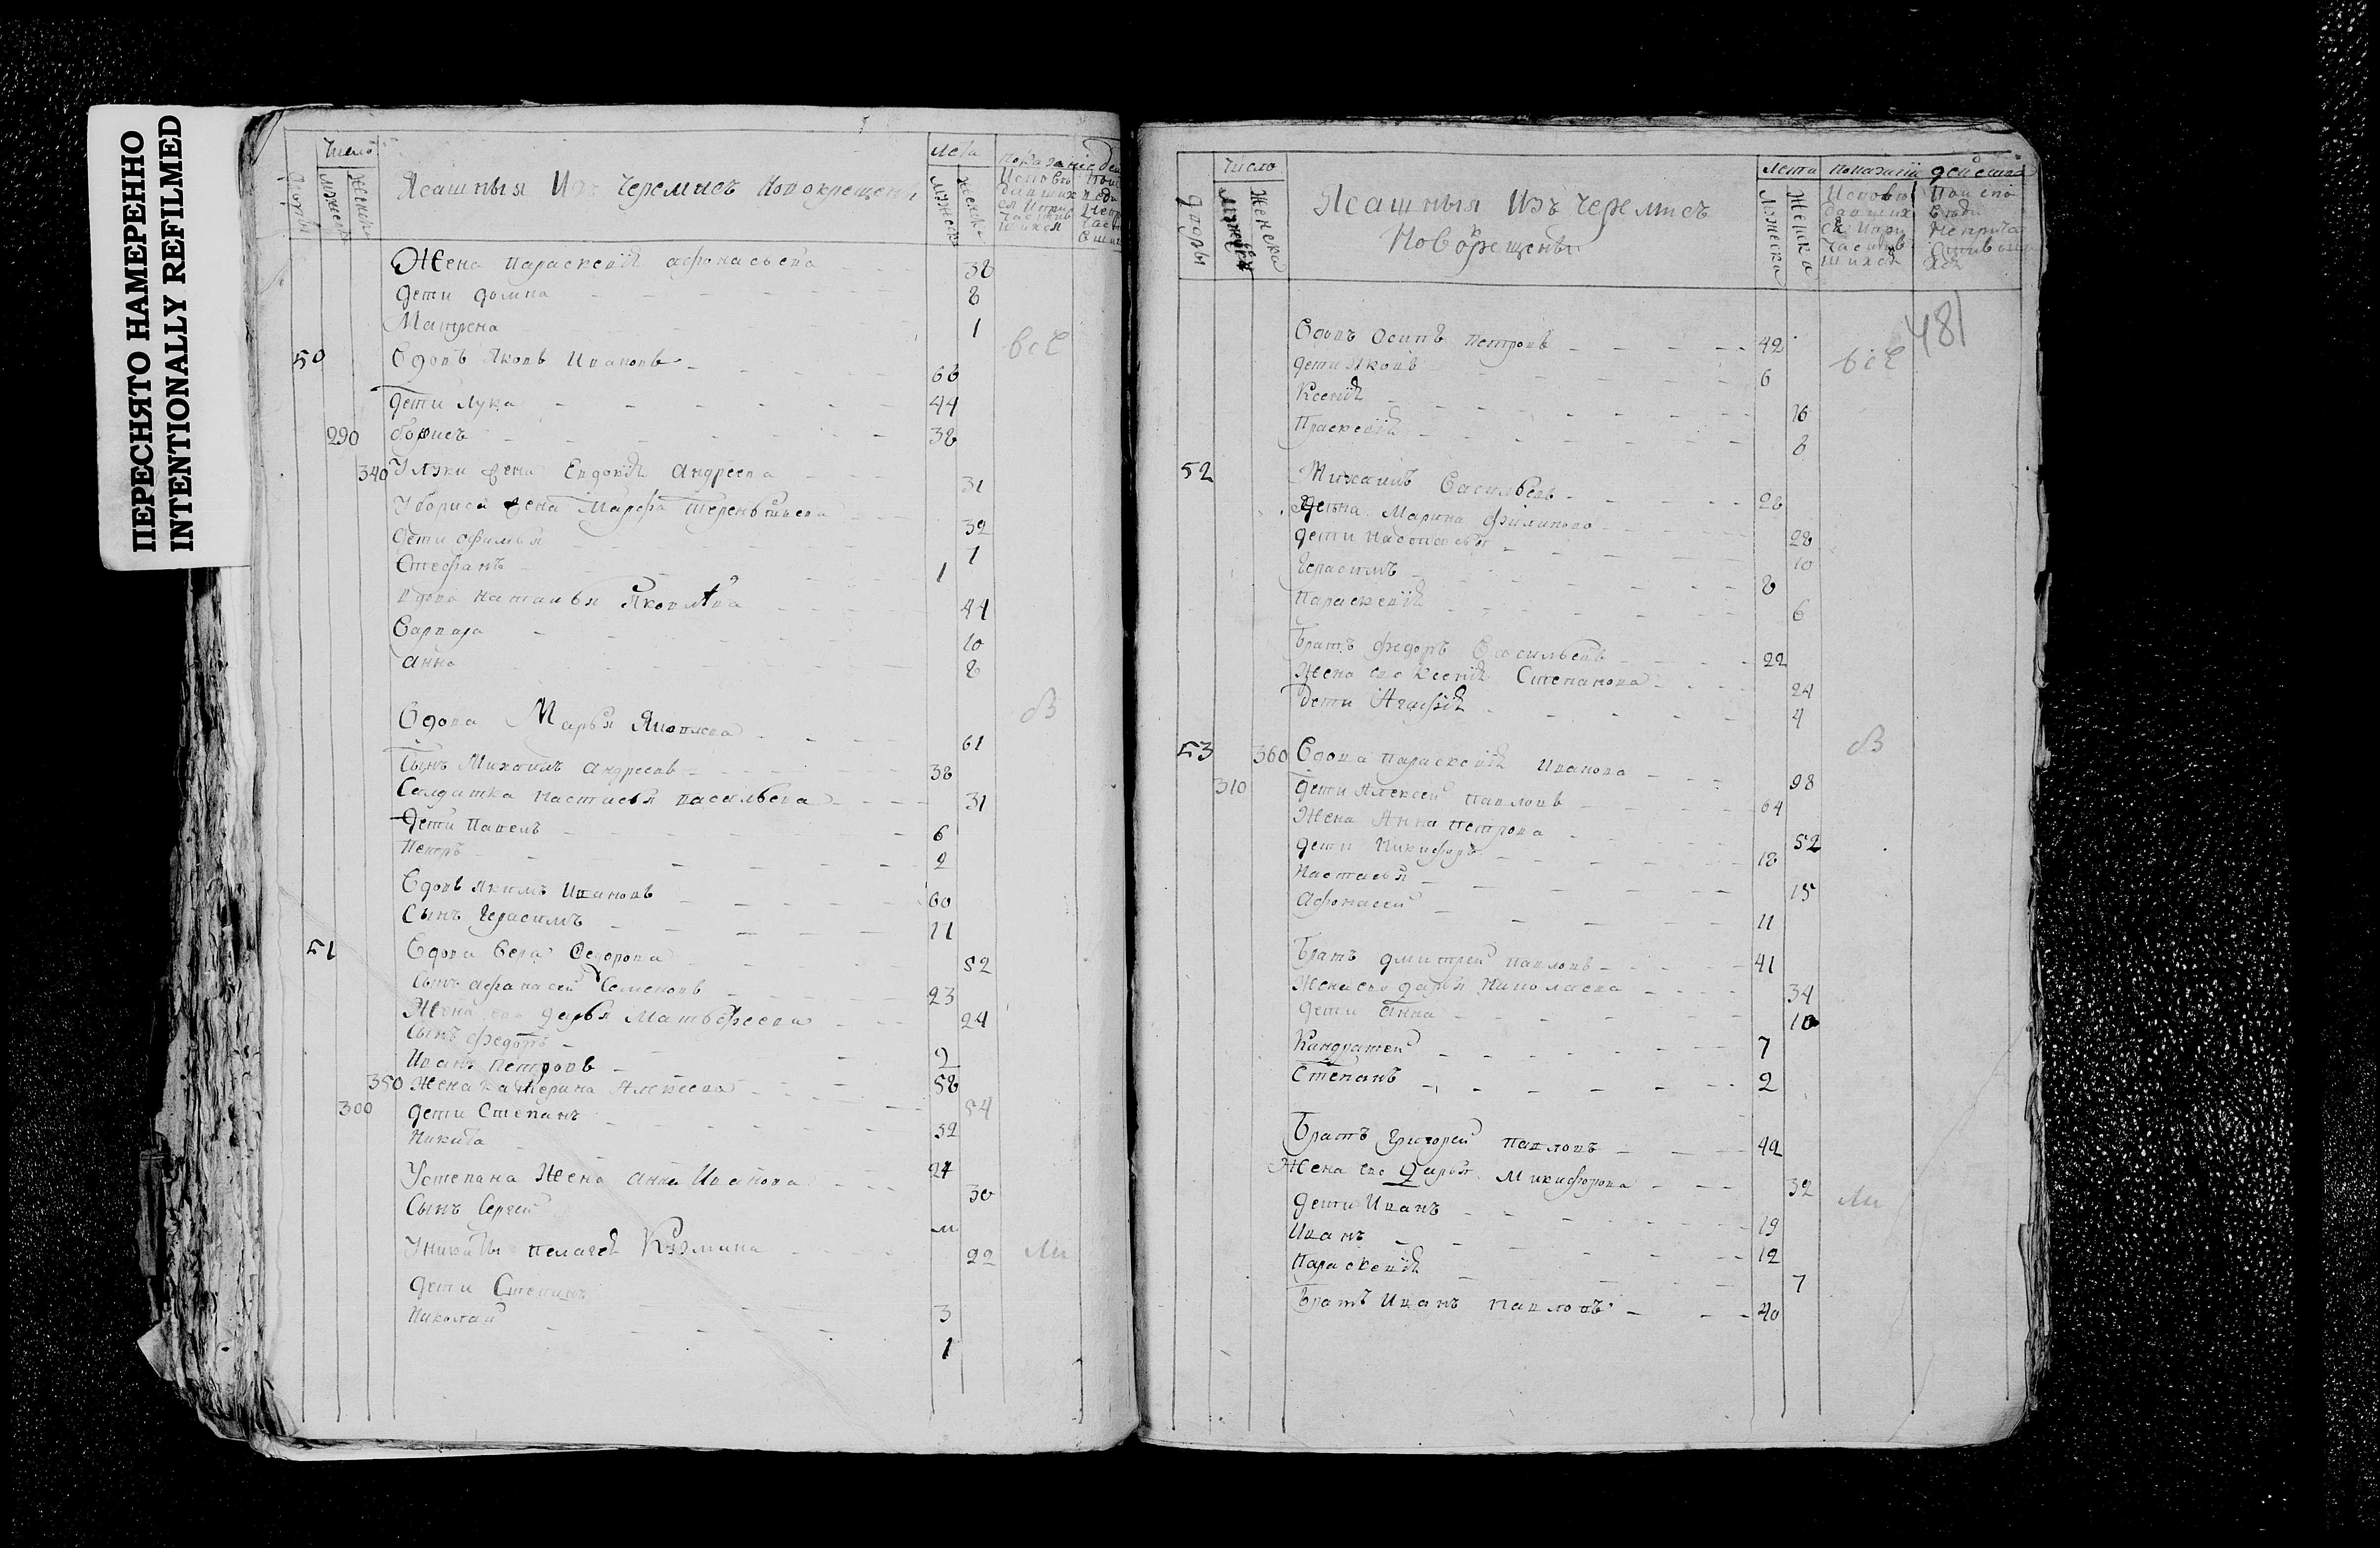 ПЕРЕСНЯТО НАМЕРЕННО
INTENTIONALLY REFILMED
Число Лета
Дворы Мужеска Женска Ясашныя Изъ черемисъ новокрещены Мужеска Женска
Жена параскевия афонасьева 38
Дети домна 8
Матрена 1
всѣ
50 Вдовъ Яковъ Ивановъ 66
Дети Лука 44
290 борисъ 38
340 У Луки жена Евдокия Андреева 31
У бориса жена Марфа терентиева 32
Дети 1
Стефанъ 1
вдова наталья Яковлева 44
Варвара 10
анна 8
Вдова Марья Яковлева 61
Сынъ Михаилъ андреевъ 38
Солдатка настасья васильева 31
Дети Павелъ 6
Петръ 2
Вдовъ Якимъ Ивановъ 60
Сынъ Герасимъ 11
51 Вдова Вера Федорова 52
Сынъ афанасей Семеновъ 23
Жена ево дарья Матвѣеева 24
Сынъ федоръ 2
Иванъ Петровъ 58
350 Жена катерина Алексеева 54
300 дети Степанъ 32
Никита 24
У степана Жена анна Иванова 30
Сынъ Сергей 11
У никиты пелагея Козмина 22
Дети Степанъ 3
Николай 1
Число Лета показании действа
Дворы Мужеска Женска Ясашныя Изъ черемисъ Мужеска Женска
Новокрещены
481
Вдовъ Осипъ Петровъ 42
всѣ
дети Яковъ 6
Ксения 16
Праскевия 8
52 Михаилъ Васильевъ 28
Жена Марина филипова 28
дети настасья 10
Герасимъ 8
Параскевия 6
Братъ федоръ Васильевъ 22
Жена ево Ксения Степанова 24
Дети Агафия 4
53 360 Вдова Параскевия Иванова 98
310 Дети Алексей павловъ 64
Жена Анна петрова 52
дети Никифоръ 18
Настасья 15
Афонасей 11
Братъ дмитрей павловъ 41
Жена ево дарья николаева 34
Дети анна 10
Кандратей 7
Степанъ 2
Братъ Григорей павловъ 42
Жена ево Дарья Микифорова 32
дети Иванъ 19
Иванъ 12
Параскевия 7
Братъ Иванъ павловъ 40